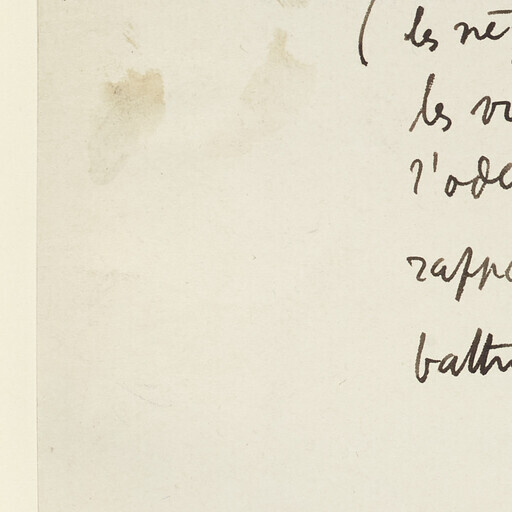 ( les né
les vi
l'ode
rappe
battr